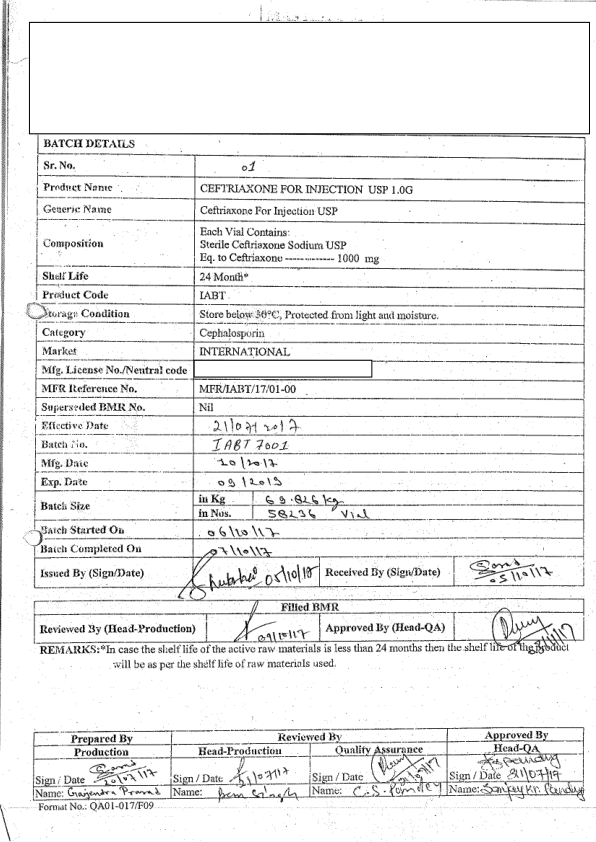 BATCH DETAILS
Sr. No. 01
Product Name CEFTRIAXONE FOR INJECTION USP 1.0G
Generic Name Ceftriaxone For Injection USP
Composition Each Vial Contains:
Sterile Ceftriaxone Sodium USP
Eq. to Ceftriaxone ------------- 1000 mg
Shelf Life 24 Month*
Product Code IABT
Storage Condition Store below 30°C, Protected from light and moisture.
Category Cephalosporin
Market INTERNATIONAL
Mfg. License No./Neutral code
MFR Reference No. MFR/IABT/17/01-00
Superseded BMR No. Nil
Effective Date 21/07/2017
Batch No. IABT 7001
Mfg. Date 10/2017
Exp. Date 09/2019
Batch Size in Kg 69.826 kg
in Nos. 58236 Vial
Batch Started On 06/10/17
Batch Completed On 07/10/17
Issued By (Sign/Date) 05/10/17 Received By (Sign/Date) 05/10/17
Filled BMR
Reviewed By (Head-Production) 09/10/17 Approved By (Head-QA)
REMARKS:*In case the shelf life of the active raw materials is less than 24 months then the shelf life of the product
will be as per the shelf life of raw materials used.
Prepared By Reviewed By Approved By
Production Head-Production Quality Assurance Head-QA
Sign / Date 20/07/17 Sign / Date 21/07/17 Sign / Date 21/07/17 Sign / Date 21/07/17
Name: Gajendra Prasad Name: Ram Singh Name: C.S. Pandey Name: Sanjay Kr. Pandey
Format No.: QA01-017/F09